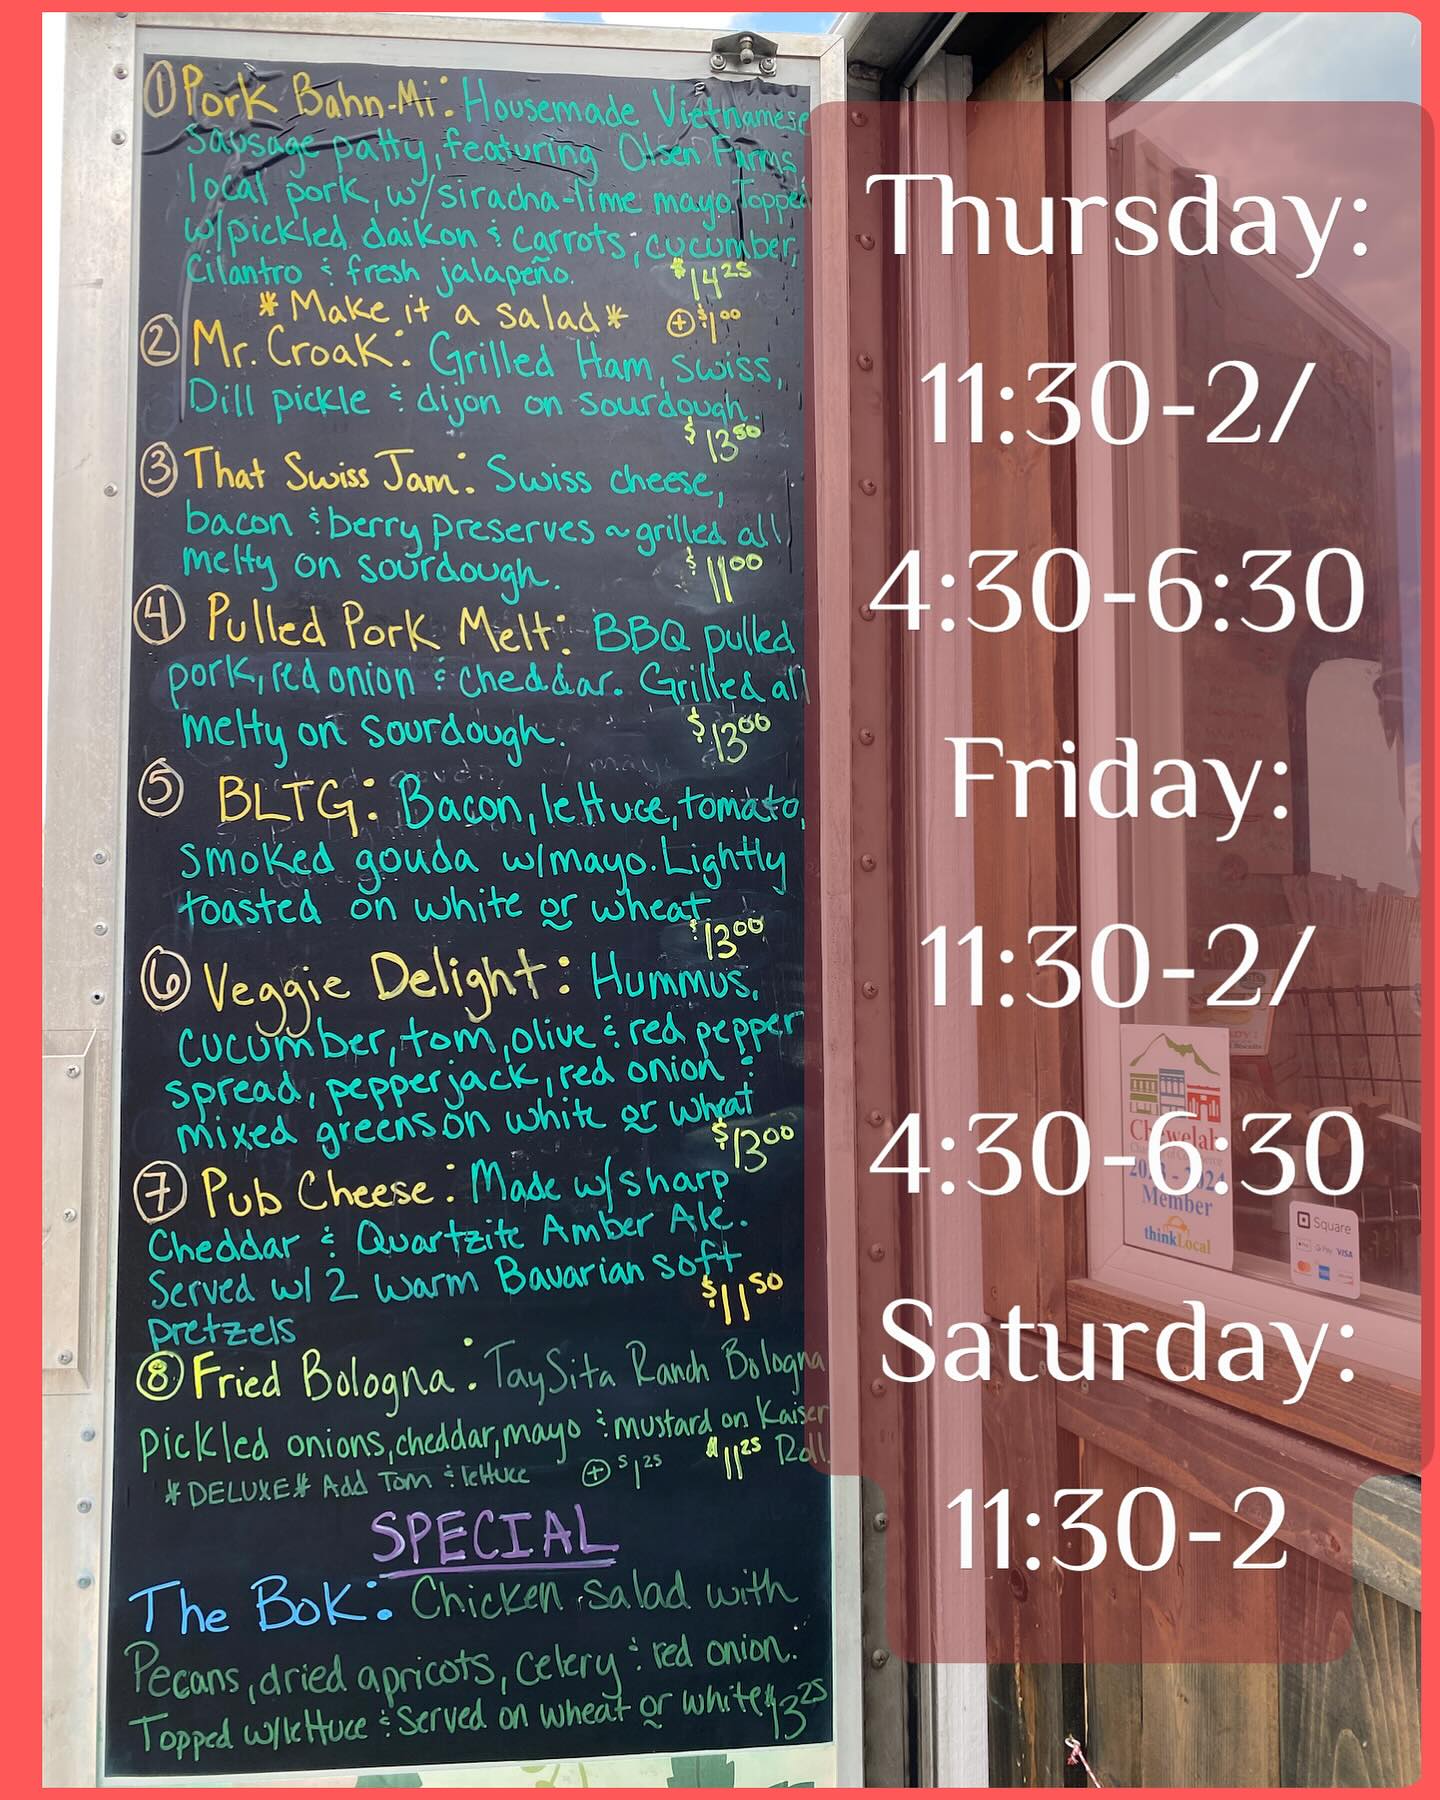 ① Pork Bahn-Mi: Housemade Vietnamese
sausage patty, featuring Olsen Farms
local pork, w/siracha-lime mayo. Topped
w/pickled daikon & carrots, cucumber,
cilantro & fresh jalapeño. $14.25
*Make it a salad* ⊕ $1.00
② Mr. Croak: Grilled Ham, swiss,
Dill pickle & dijon on sourdough.
$13.50
③ That Swiss Jam: Swiss cheese,
bacon & berry preserves ~ grilled all
melty on sourdough. $11.00
④ Pulled Pork Melt: BBQ pulled
pork, red onion & cheddar. Grilled all
melty on sourdough. $13.00
⑤ BLTG: Bacon, lettuce, tomato,
smoked gouda w/mayo. Lightly
toasted on white or wheat
$13.00
⑥ Veggie Delight: Hummus,
cucumber, tom, olive & red pepper
spread, pepperjack, red onion &
mixed greens on white or wheat
$13.00
⑦ Pub Cheese: Made w/sharp
Cheddar & Quartzite Amber Ale.
Served w/ 2 warm Bavarian soft
pretzels $11.50
⑧ Fried Bologna: TaySita Ranch Bologna
pickled onions, cheddar, mayo & mustard on Kaiser
Roll $11.25
*DELUXE* Add Tom & lettuce ⊕ $1.25
SPECIAL
The Bok: Chicken salad with
Pecans, dried apricots, celery & red onion.
Topped w/lettuce & Served on wheat or white $13.25
Thursday:
11:30-2/
4:30-6:30
Friday:
11:30-2/
4:30-6:30
Saturday:
11:30-2
Chewelah
2023-2024
Member
thinkLocal
Square
Pay
G Pay
VISA